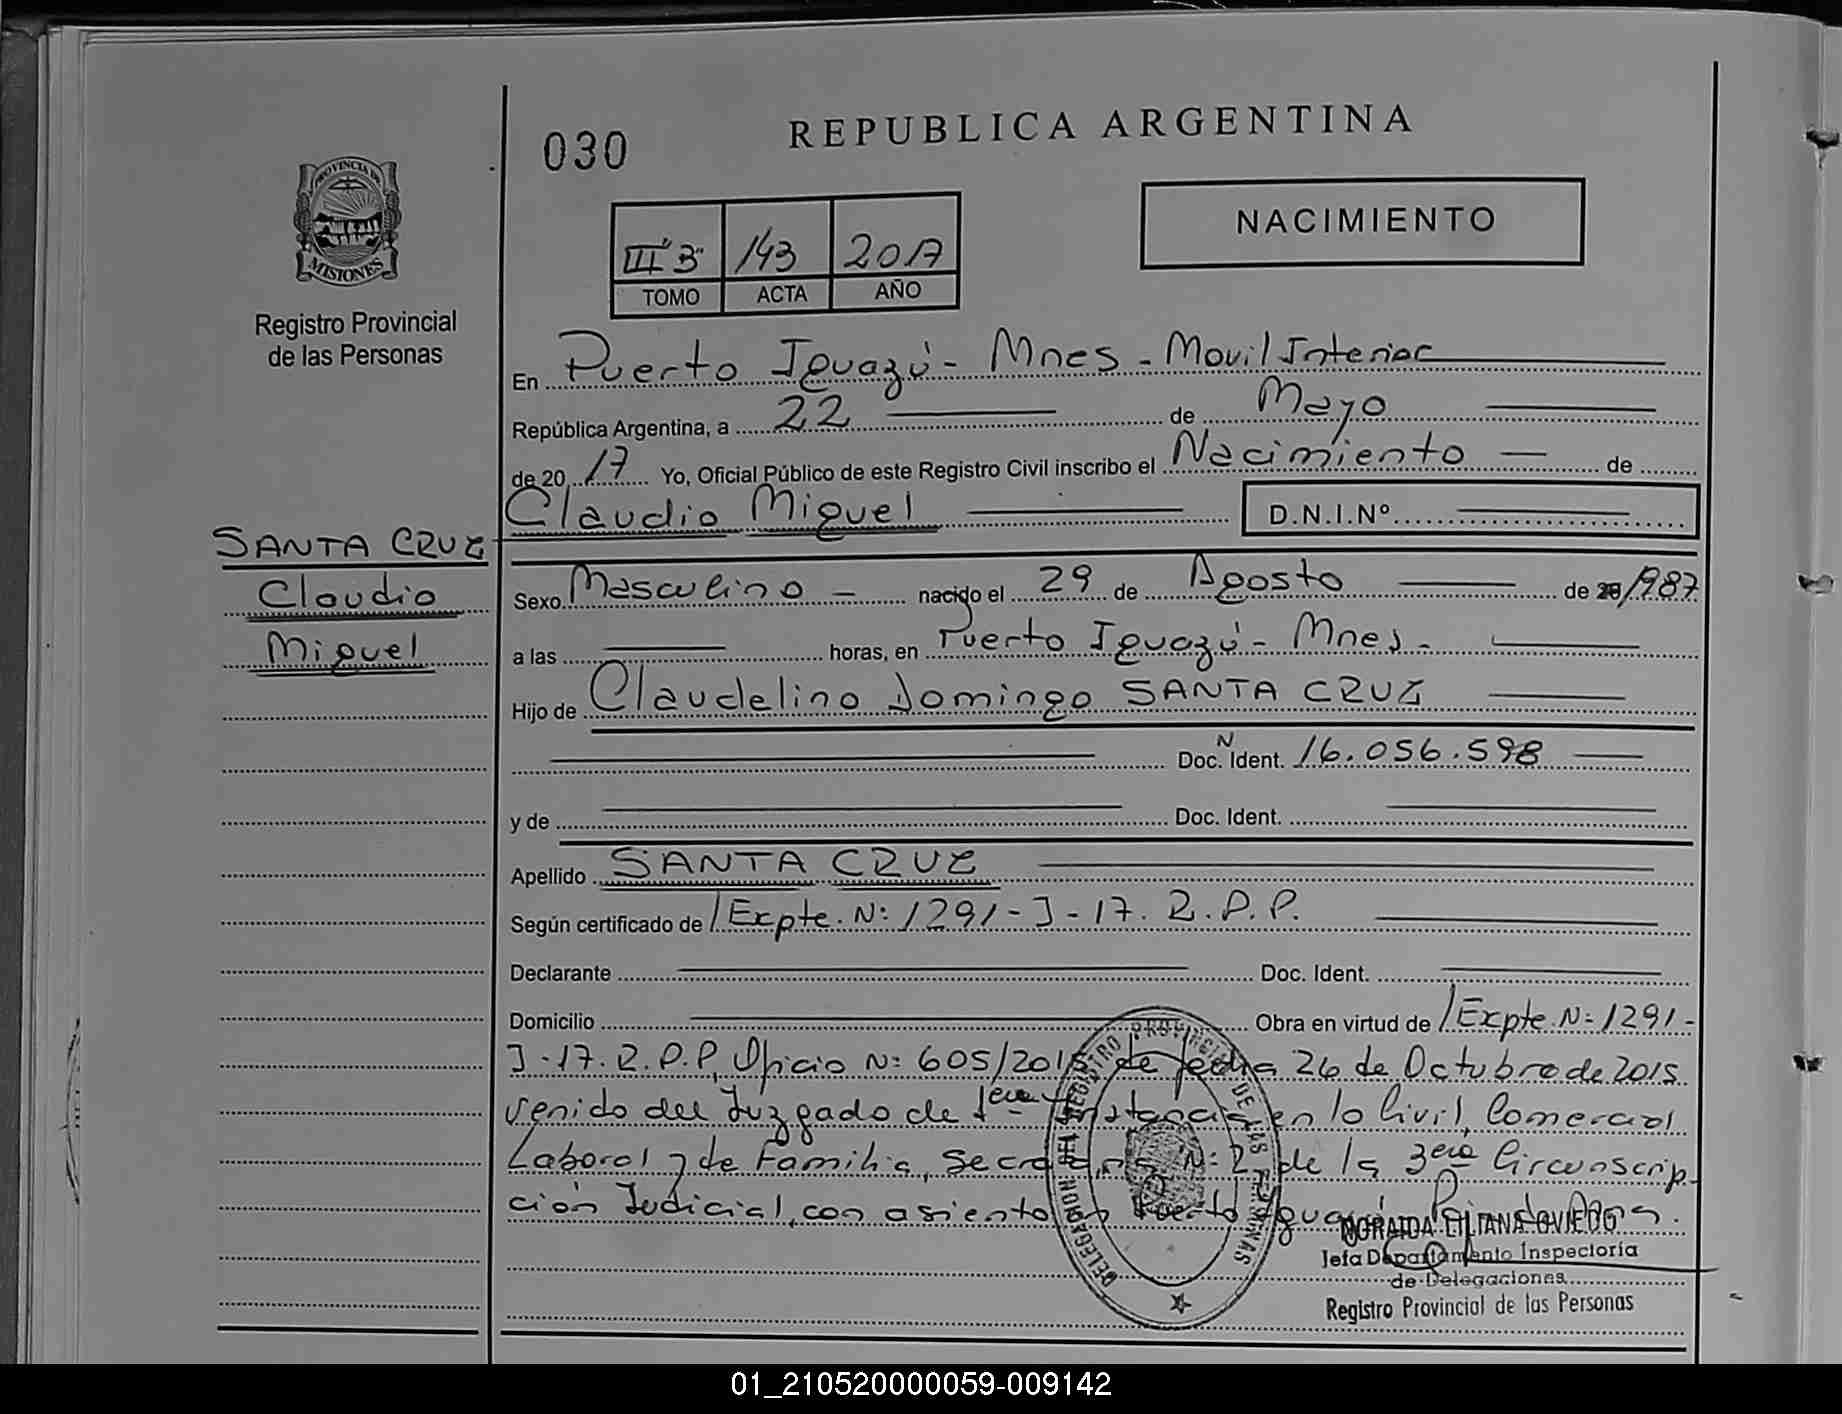 030
REPUBLICA ARGENTINA
NACIMIENTO
PROVINCIA DE
MISIONES
Registro Provincial
de las Personas
III "B" 143 2017
TOMO ACTA AÑO
En Puerto Iguazú - Mnes - Movil Interior
República Argentina, a 22 de Mayo
de 20 17 Yo, Oficial Público de este Registro Civil inscribo el Nacimiento de
Claudio Miguel D.N.I.Nº
SANTA CRUZ
Claudio
Miguel
Sexo Masculino nacido el 29 de Agosto de 1987
a las horas, en Puerto Iguazú - Mnes -
Hijo de Claudelino Domingo SANTA CRUZ
Doc. N Ident. 16.056.598
y de Doc. Ident.
Apellido SANTA CRUZ
Según certificado de Expte. Nº 1291-J-17. R.P.P.
Declarante Doc. Ident.
Domicilio Obra en virtud de Expte. Nº 1291-
J-17. R.P.P, Oficio Nº 605/2015 de fecha 26 de Octubre de 2015
venido del Juzgado de 1era Instancia en lo Civil, Comercial
Laboral y de Familia, Secretaria Nº 2 de la 3era Circunscrip-
ción Judicial, con asiento en Puerto Iguazú
DELEGACION DEL REGISTRO PROVINCIAL DE LAS PERSONAS
LILIANA OVIEDO
Jefa Departamento Inspectoría
de Delegaciones
Registro Provincial de las Personas
01_210520000059-009142